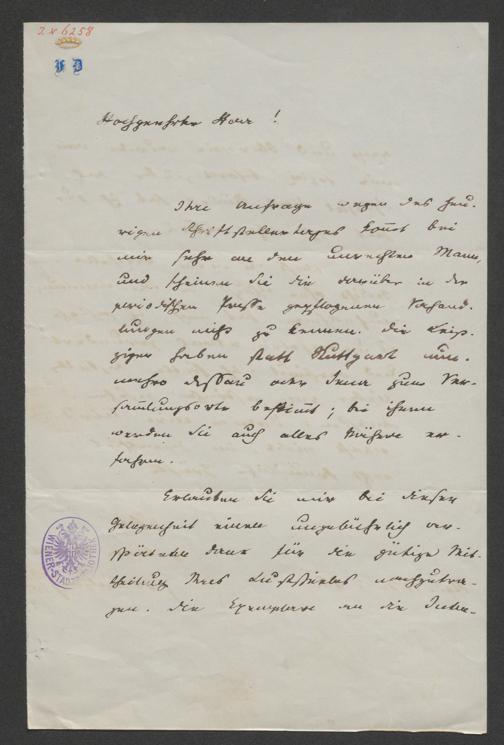 I.N. 6258
F D
Hochgeehrter Herr!
Ihre Anfrage wegen des heu-
rigen Schriftstellertages kommt bei
mir sehr an den unrechten Mann,
und scheinen Sie die darüber in der
periodischen Presse gepflogenen Verhand-
lungen nicht zu kennen. Die Leip-
ziger haben statt Stuttgart nun-
mehro Dessau oder Jena zum Ver-
sammlungsorte bestimmt; bei ihnen
werden Sie auch alles Nähere er-
fahren.
Erlauben Sie mir bei dieser
Gelegenheit einen ungebührlich ver-
späteten Dank für die gütige Mit-
theilung Ihres Lustspieles nachzutra-
gen. Die Exemplare an die
WIENER-STADT-BIBLIOTHEK